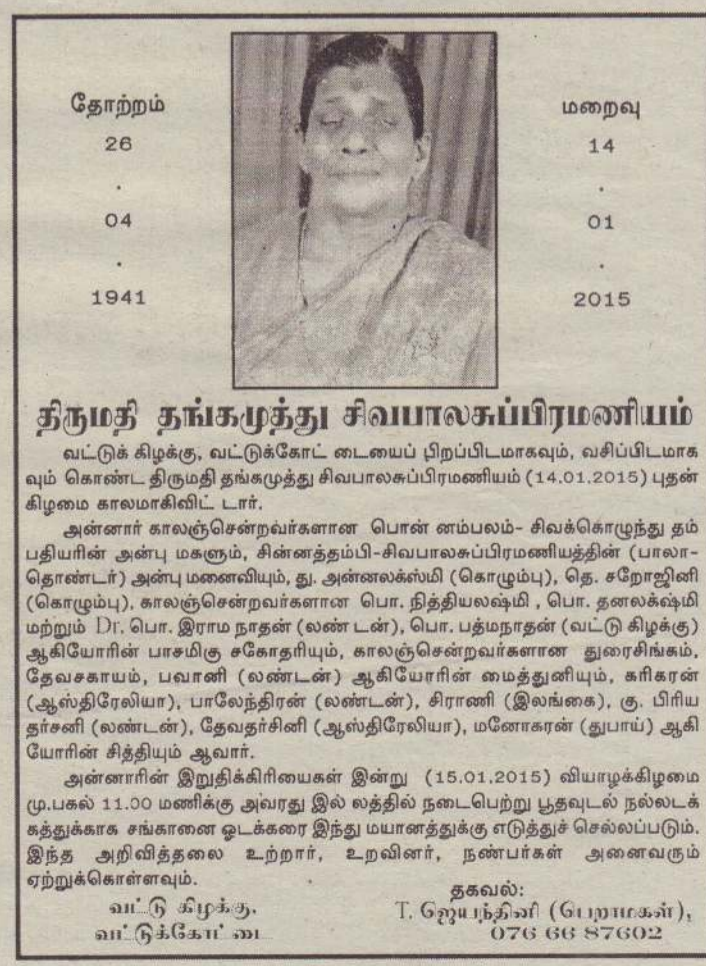 தோற்றம்
26
.
04
.
1941
மறைவு
14
.
01
.
2015
திருமதி தங்கமுத்து சிவபாலசுப்பிரமணியம்
வட்டுக் கிழக்கு, வட்டுக்கோட் டையைப் பிறப்பிடமாகவும், வசிப்பிடமாக
வும் கொண்ட திருமதி தங்கமுத்து சிவபாலசுப்பிரமணியம் (14.01.2015) புதன்
கிழமை காலமாகிவிட் டார்.
அன்னார் காலஞ்சென்றவர்களான பொன் னம்பலம்- சிவக்கொழுந்து தம்
பதியரின் அன்பு மகளும், சின்னத்தம்பி-சிவபாலசுப்பிரமணியத்தின் (பாலா-
தொண்டர்) அன்பு மனைவியும், து. அன்னலக்ஸ்மி (கொழும்பு), தெ. சறோஜினி
(கொழும்பு), காலஞ்சென்றவர்களான பொ. நித்தியலஷ்மி , பொ. தனலக்ஷ்மி
மற்றும் Dr. பொ. இராம நாதன் (லண் டன்), பொ. பத்மநாதன் (வட்டு கிழக்கு)
ஆகியோரின் பாசமிகு சகோதரியும், காலஞ்சென்றவர்களான துரைசிங்கம்,
தேவசகாயம், பவானி (லண்டன்) ஆகியோரின் மைத்துனியும், கரிகரன்
(ஆஸ்திரேலியா), பாலேந்திரன் (லண்டன்), சிராணி (இலங்கை), கு. பிரிய
தர்சனி (லண்டன்), தேவதர்சினி (ஆஸ்திரேலியா), மனோகரன் (துபாய்) ஆகி
யோரின் சித்தியும் ஆவார்.
அன்னாரின் இறுதிக்கிரியைகள் இன்று (15.01.2015) வியாழக்கிழமை
மு.பகல் 11.00 மணிக்கு அவரது இல் லத்தில் நடைபெற்று பூதவுடல் நல்லடக்
கத்துக்காக சங்கானை ஓடக்கரை இந்து மயானத்துக்கு எடுத்துச் செல்லப்படும்.
இந்த அறிவித்தலை உற்றார், உறவினர், நண்பர்கள் அனைவரும்
ஏற்றுக்கொள்ளவும்.
வட்டு கிழக்கு,
வட்டுக்கோட்டை
தகவல்:
T. ஜெயந்தினி (பெறாமகள்),
076 66 87602